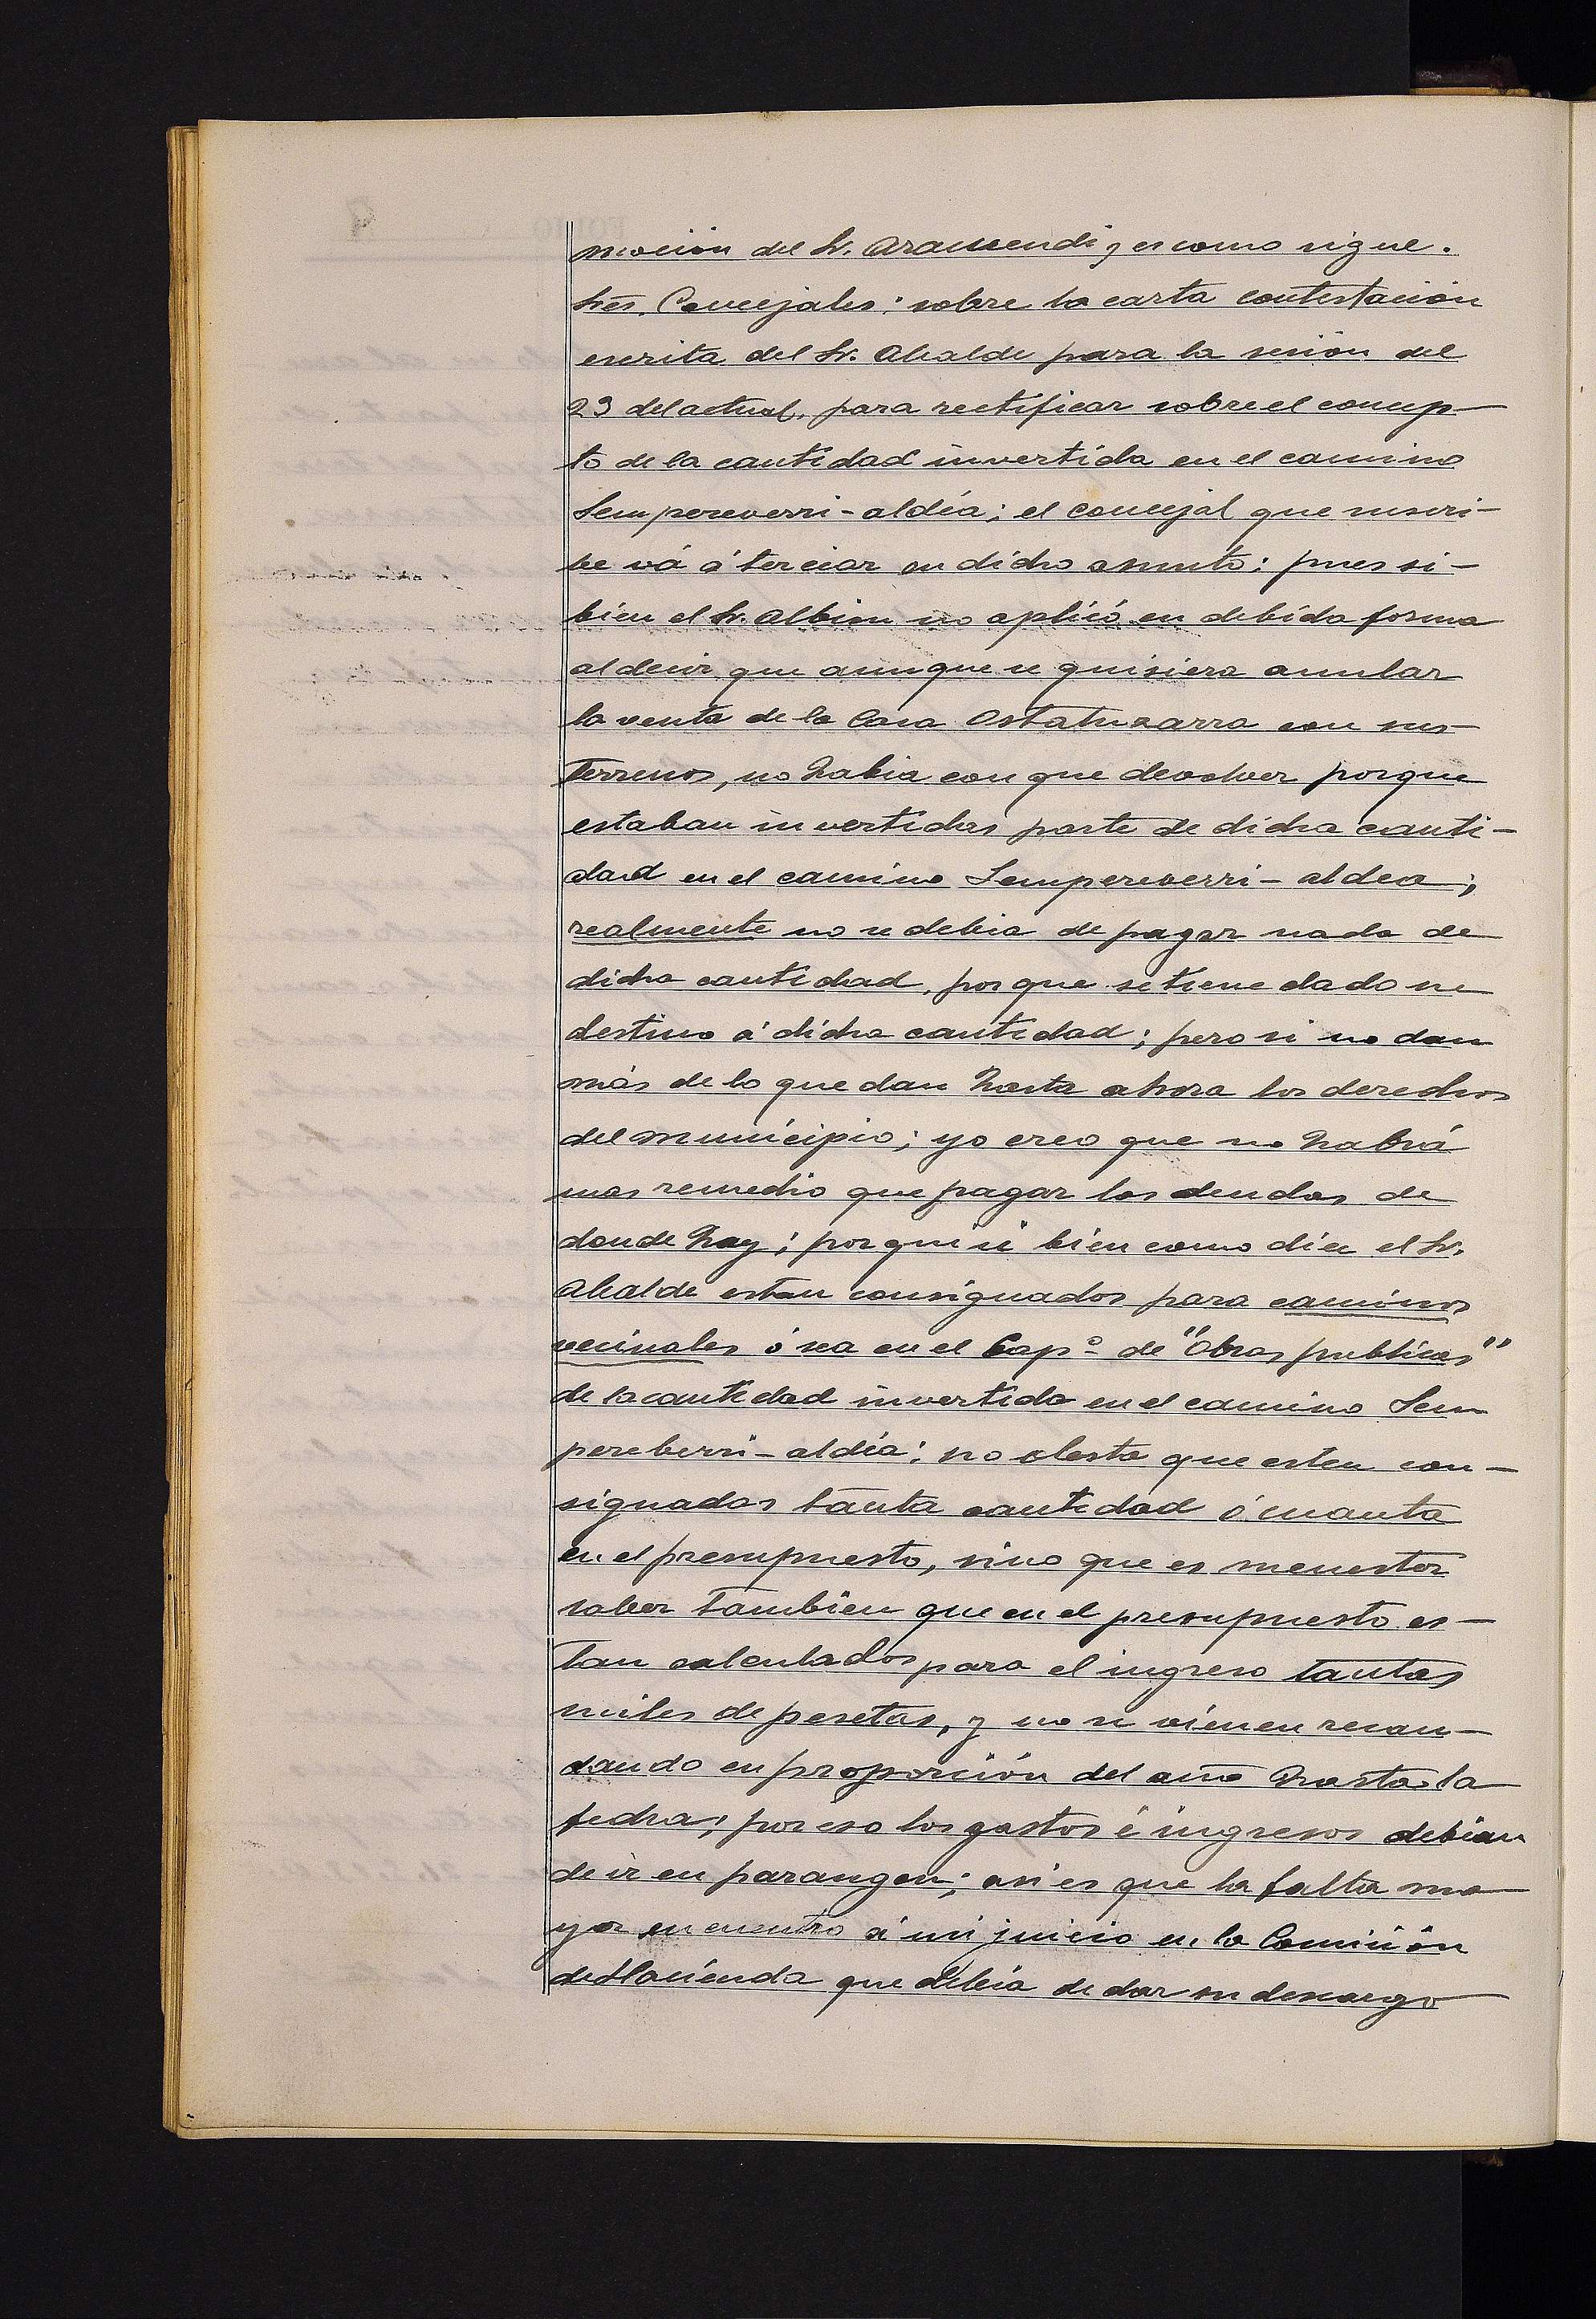 moción del Sr. Aramendi y es como sigue.
Srēs. Concejales: sobre la carta contestación
escrita del Sr. Alcalde para la sesión del
23 del actual, para rectificar sobre el concep-
to de la cantidad invertida en el camino
Sempereverri-aldía; el concejal que suscri-
be vá á terciar en dicho asunto: pues si-
bien el Sr. Albisu no aplicó en debida forma
al decir que aunque se quisiera anular
la venta de la Casa Ostatuzarra con sus
terrenos, no habia con que devolver porque
estaban invertidas parte de dicha canti-
dad en el camino Sempereverri-aldea;
realmente no se debia de pagar nada de
dicha cantidad, por que se tiene dado su
destino á dicha cantidad; pero si no dan
más de lo que dan hasta ahora los derechos
del municipio; yo creo que no habrá
mas remedio que pagar las deudas de
donde hay; por que si bien como dice el Sr.
Alcalde estan consignados para caminos
vecinales ó sea en el Capº de "Obras publicas"
de la cantidad invertida en el camino Sem
pereberri-aldía: no obsta que esten con-
signadas tanta cantidad ó cuanta
en el presupuesto, sino que es menester
saber tambien que en el presupuesto es-
tan calculados para el ingreso tantas
miles de pesetas, y no se vienen recau-
dando en proporción del año hasta la
fecha; por eso los gastos é ingresos debian
de ir en parangon; asi es que la falta ma
yor encuentro á mi juicio en la Comisión
de Hacienda que debia de dar su descargo